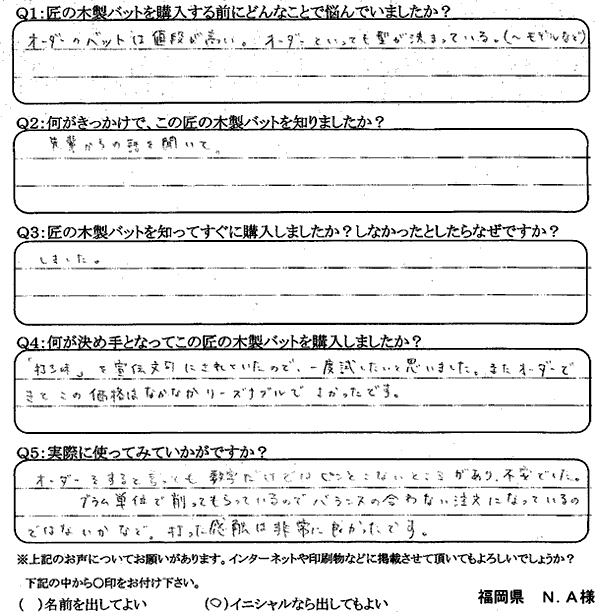 Q1:匠の木製バットを購入する前にどんなことで悩んでいましたか?
オーダーのバットは値段が高い。オーダーといっても型が決まっている。(〜モデルなど)
Q2:何がきっかけで、この匠の木製バットを知りましたか?
先輩からの話を聞いて。
Q3:匠の木製バットを知ってすぐに購入しましたか?しなかったとしたらなぜですか?
しました。
Q4:何が決め手となってこの匠の木製バットを購入しましたか?
を宣伝文句にされていたので、一度試したいと思いました。またオーダーで
きてこの価格はなかなかリーズナブルでよかったです。
Q5:実際に使ってみていかがですか?
オーダーをすると言っても数字だけではピンとこないところがあり、不安でした。
グラム単位で削ってもらっているのでバランスの合わない注文になっているの
ではないかなど。打った感触は非常に良かったです。
※上記のお声についてお願いがあります。インターネットや印刷物などに掲載させて頂いてもよろしいでしょうか?
下記の中から〇印をお付け下さい。
( )名前を出してよい (〇)イニシャルなら出してもよい
福岡県 N.A様